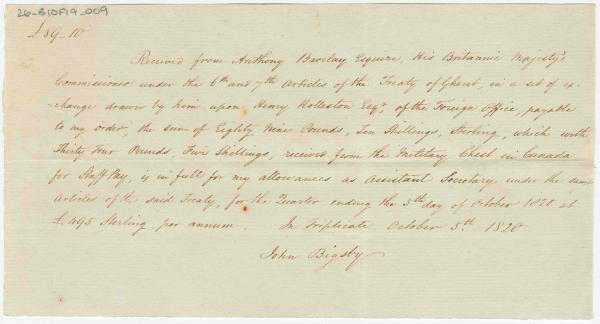 26-B10F19-009
£89_10
Received from Anthony Barclay Esquire, His Britannic Majesty's
Commissioner under the 6th and 7th Articles of the Treaty of Ghent, in a set of ex-
-change drawn by him upon Henry Rolleston Esqr. of the Foreign Office, payable
to my order, the sum of Eighty Nine Pounds, Ten Shillings, Sterling, which with
Thirty Four Pounds, Five Shillings, received from the Military Chest in Canada
for Staff Pay, is in full for my allowances as Assistant Secretary under the same
Articles of the said Treaty, for the Quarter ending the 5th day of October 1820 at
£495 Sterling per annum. In Triplicate October 5th. 1820
John Bigsby